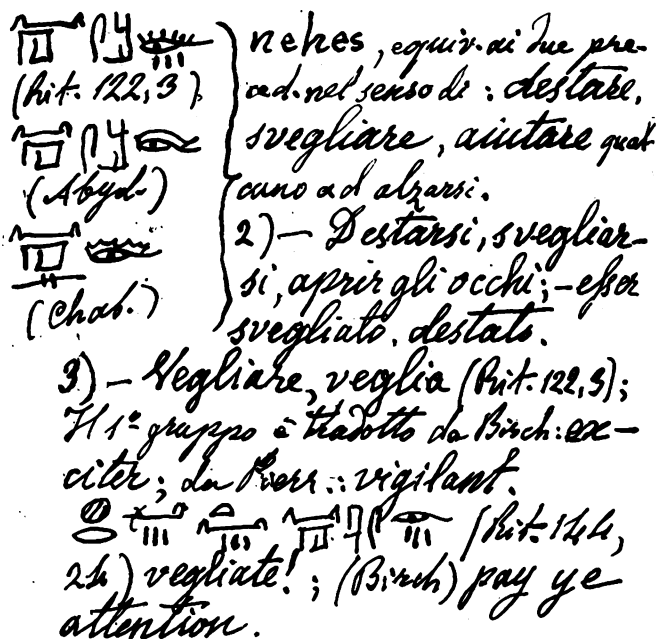 nehes, equiv. ai due pre-
(Rit. 122,3) ced. nel senso di: destare,
svegliare, aiutare qual
(Abyd.) cuno ad alzarsi.
2) — Destarsi, svegliar-
si, aprir gli occhi; — esser
(Chab.) svegliato, destato.
3) — Vegliare, veglia (Rit. 122,3);
Il 1º gruppo è tradotto da Birch: ex-
citer; da Pierr.: vigilant.
(Rit. 144,
24) vegliate!; (Birch) pay ye
attention.